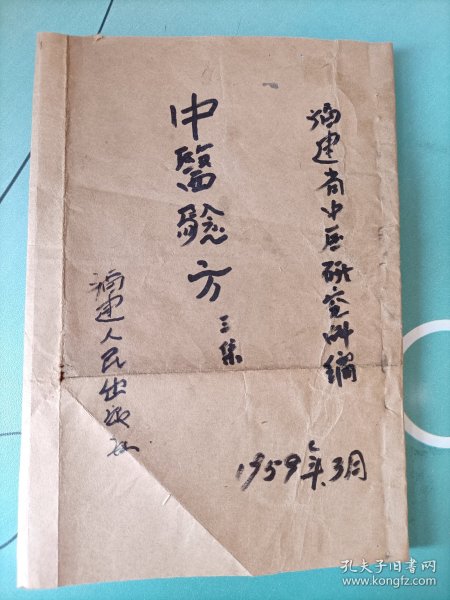 福建省中医研究所编
中醫驗方
三集
福建人民出版社
1959年3月
孔夫子旧书网
www.kongfz.com